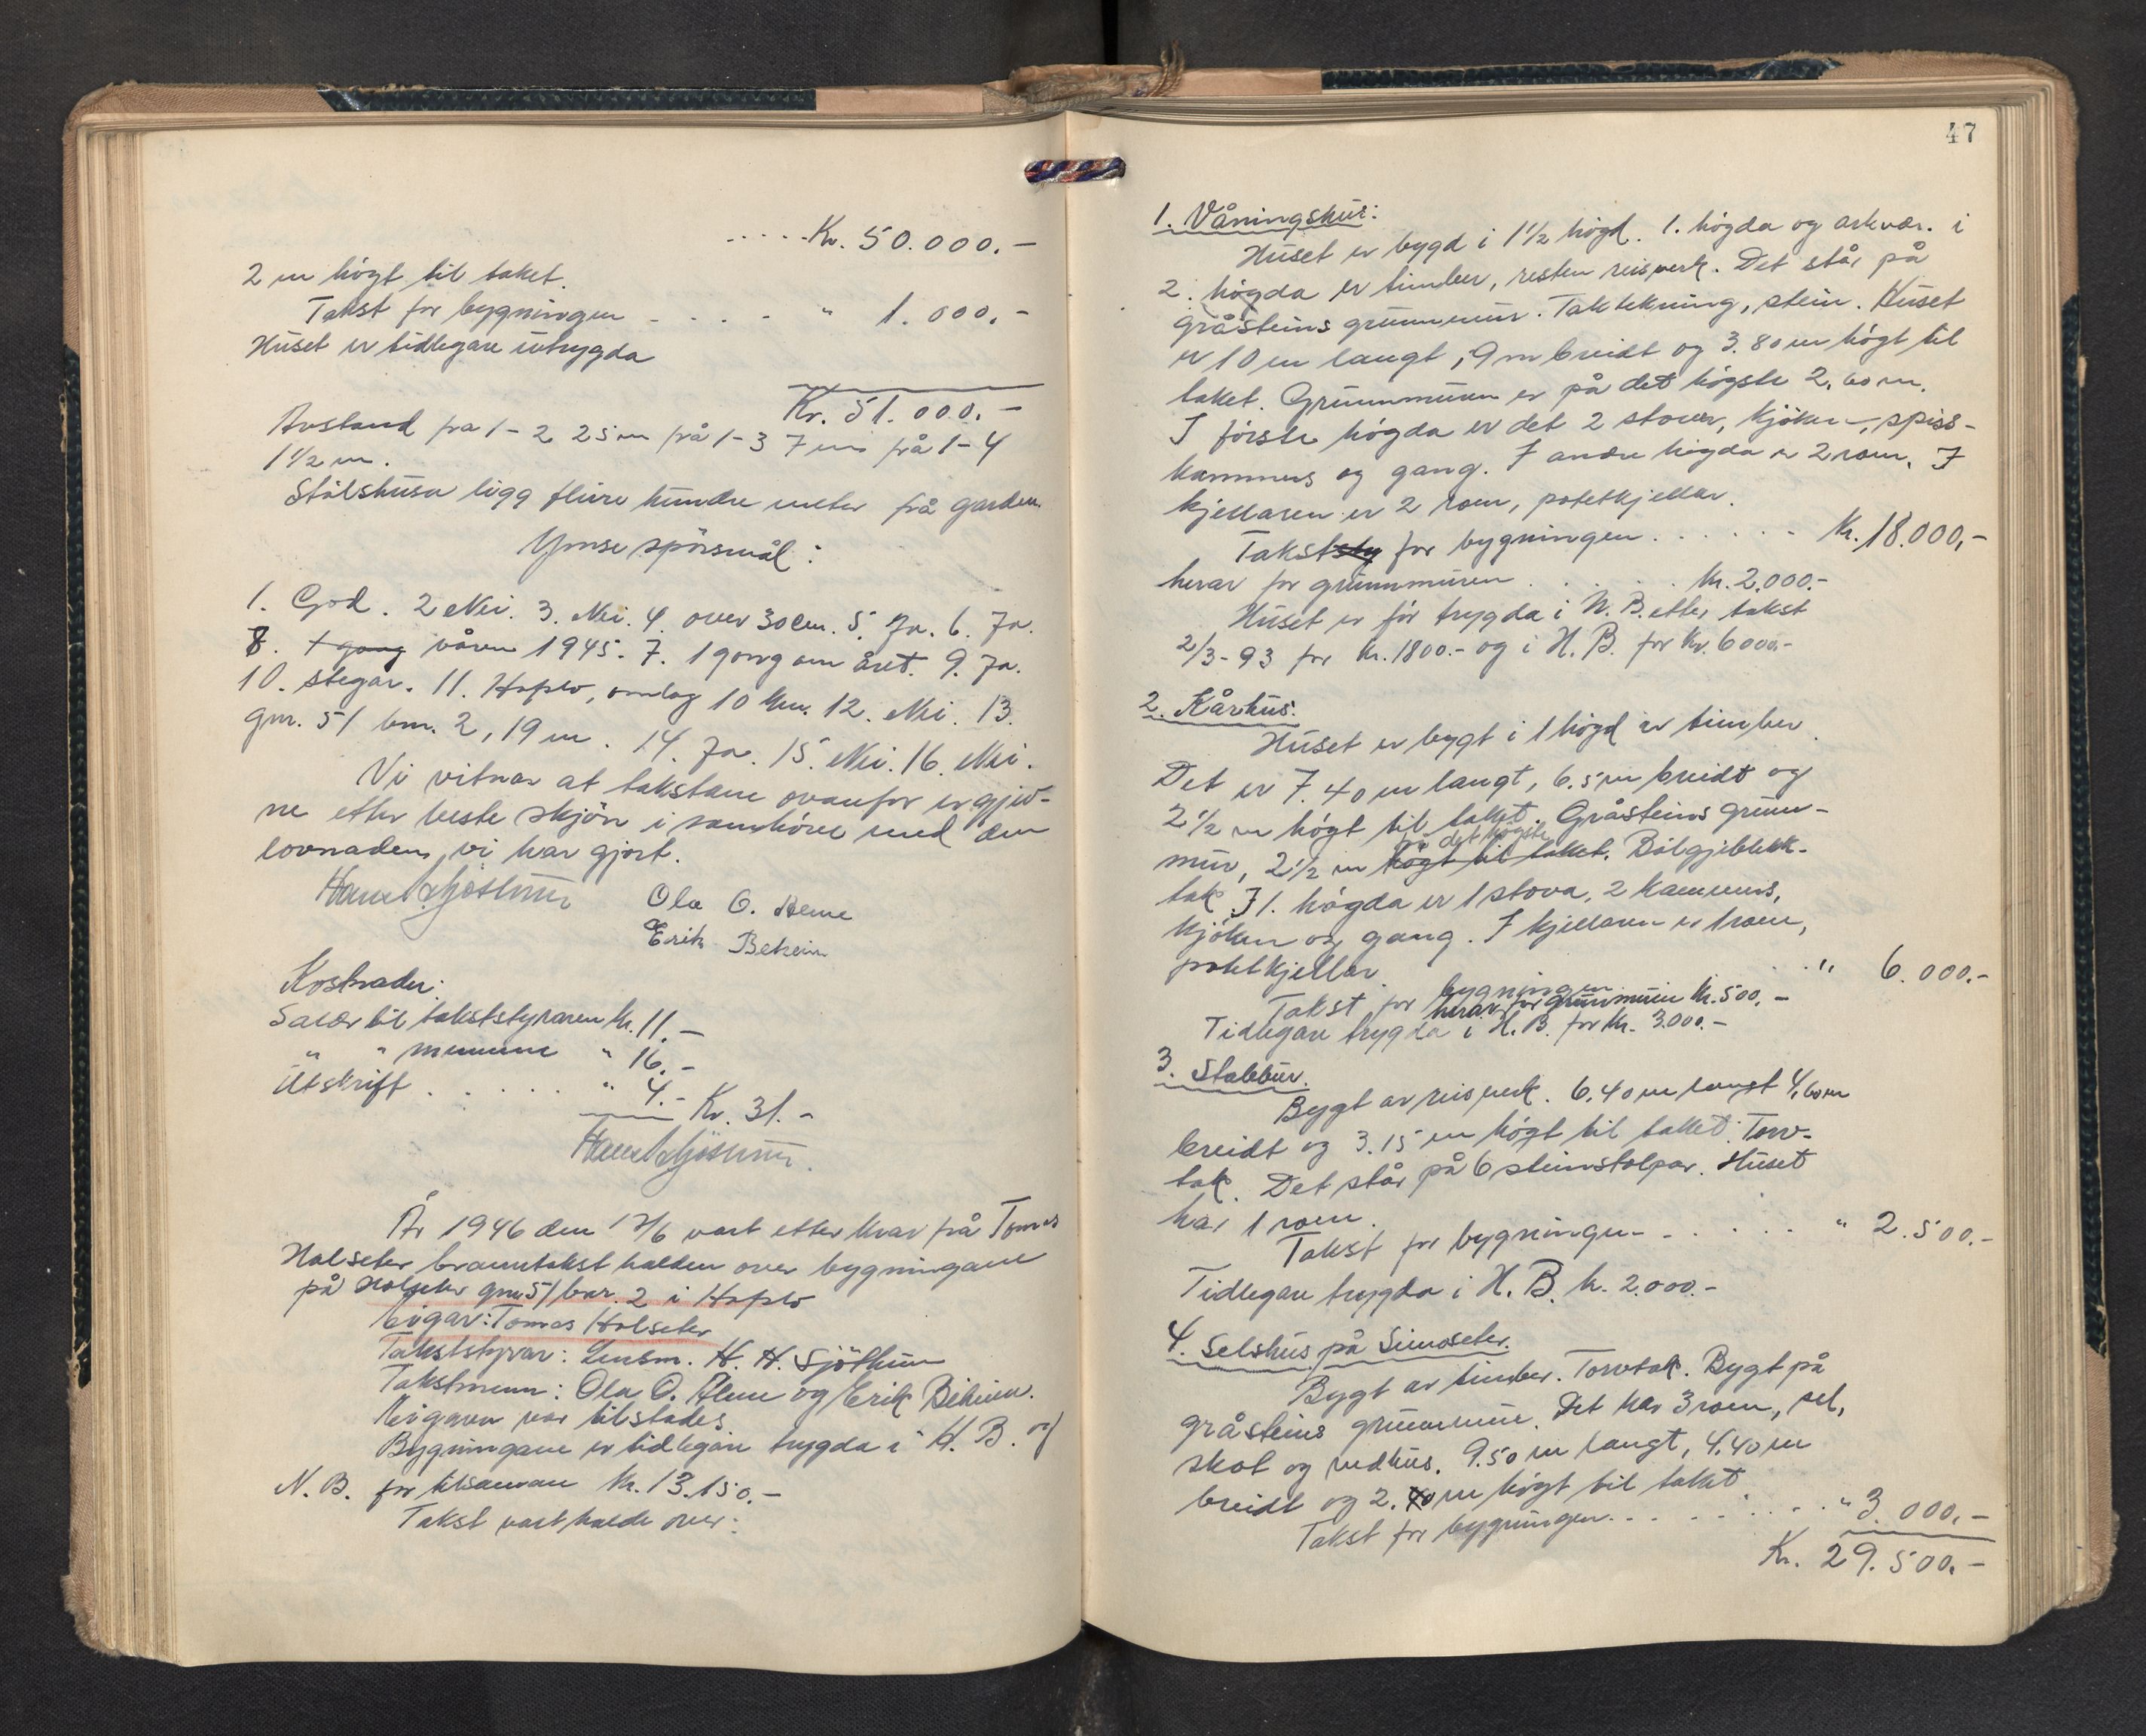 . . . . . Kr. 50.000.-
2 m högt til taket.
Takst for bygningen - . . . " 1.000.-
Huset er tidlegare utrygda
Kr. 51.000.-
Avstand fra 1-2 25 m frå 1-3 7 m frå 1-4
1½ m.
Stölshusa ligg fleire hundre meter frå garden.
Ymse spörsmål:
1. God. 2 Nei. 3. Nei. 4. over 30 cm. 5. Ja. 6. Ja.
8. 1 gang våren 1945. 7. 1 gong om året. 9. Ja.
10. stegar. 11. Hafslo, omlag 10 km. 12. Nei. 13.
gnr. 51 bnr. 2, 19 m. 14. Ja. 15. Nei. 16. Nei.
Vi vitnar at takstane ovanfor er gjev-
ne etter beste skjön i samhöve med den
lovnaden vi har gjort.
Ola O.
Erik
Kostnader:
Salær til takststyraren kr. 11.-
" " mennene " 16.-
Utskrift . . . . . " 4.- Kr. 31.-
År 1946 den 17/6 vart etter krav frå Tomas
Holseter branntakst halden over bygningane
på Holseter gnr 51 bnr. 2 i Hafslo
Eigar: Tomas Holseter
Takststyrar: Lensm. H. H. Sjöthun
Takstmenn: Ola O. og Erik
Eigaren var tilstades
Bygningane er tidlegare trygda i H. B. og
N. B. for tilsaman kr. 13.150.-
Takst vart halde over:
47
1. Våningshus:
Huset er bygd i 1½ högd. 1. högda og arkvær. i
2. högda er timber, resten reisverk. Det står på
gråsteins grunnmur. Taktekning, stein. Huset
er 10 m langt, 9 m breidt og 3.80 m högt til
taket. Grunnmuren er på det högste 2,60 m.
I förste högda er det 2 stover, kjöken, spiss-
kammers og gang. I andre högda er 2 rom. I
kjellaren er 2 rom, potetkjellar.
Takst for bygningen . . . . . . Kr. 18.000,-
herav for grunnmuren . . . . . kr. 2.000.-
Huset er för trygda i N. B. etter takst
2/3-93 for kr. 1800.- og i H. B. for Kr. 6000.-
2. Kårhus:
Huset er bygt i 1 högd av timber.
Det er 7.40 m langt, 6.5 m breidt og
2½ m högt til taket. Gråsteins grunn-
mur, 2½ m högt til taket. på det högste Bölgjeblekk-
tak. I 1. högda er 1 stova, 2 kammers,
kjöken og gang. I kjellaren er 1 rom,
potetkjellar.
Takst for bygningen . . " 6.000.-
herav for grunnmuren kr. 500.-
Tidlegare trygda i H. B. for kr. 3.000.-
3. Stabbur.
Bygt av reisverk. 6,40 m langt 4,60 m
breidt og 3.15 m högt til taket. Torv-
tak. Det står på 6 steinstolpar. Huset
har 1 rom.
Takst for bygningen . . . . . " 2.500.-
Tidlegare trygda i H. B. kr. 2.000.-
4. Selshus på Simoseter.
Bygt av timber. Torvtak. Bygt på
gråsteins grunnmur. Det har 3 rom, sel,
skot og vedhus. 9.50 m langt, 4.40 m
breidt og 2.40 m högt til taket
Takst for bygningen . . . . . . " 3.000.-
Kr. 29.500.-